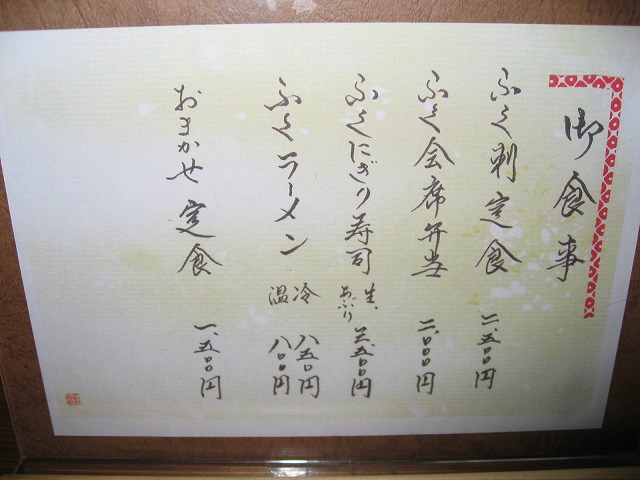 御食事
ふく刺定食 二、五〇〇円
ふく会席弁当 二、〇〇〇円
ふくにぎり寿司 生、あぶり 三、五〇〇円
ふくラーメン 冷 八五〇円
温 八〇〇円
おまかせ定食 一、五〇〇円